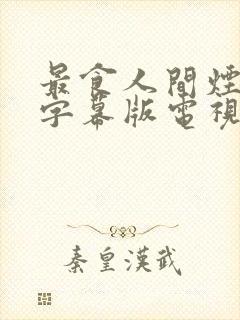 最食人間煙
字幕版電視
秦皇漢武